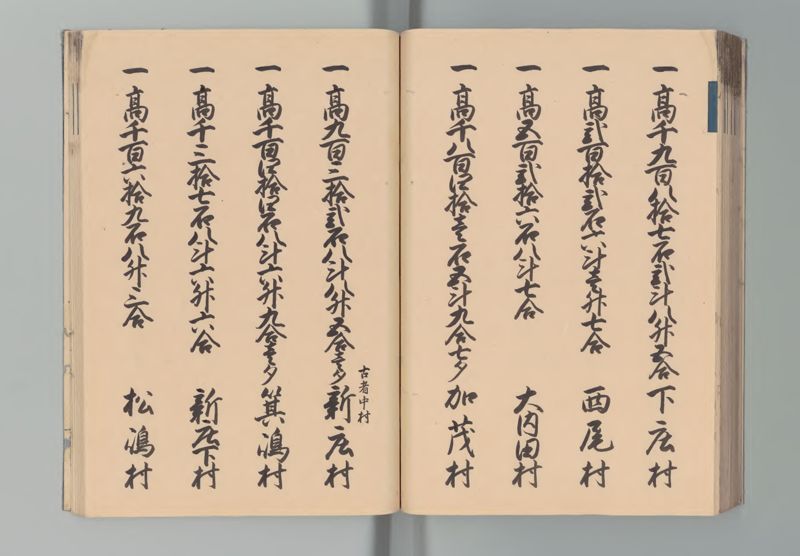 一 高千九百八拾七石弐斗八升五合 下庄村
一 高弐百拾弐石六斗壱升七合 西尾村
一 高五百弐拾六石八斗七合 大内田村
一 高千八百四拾壱石五斗九合七夕 加茂村
古者中村
一 高九百三拾弐石八斗八升五合壱夕 新庄村
一 高千百四拾四石八斗六升九合壱夕 箕嶋村
一 高千三拾七石八斗六升六合 新庄下村
一 高千百六拾九石八升三合 松嶋村